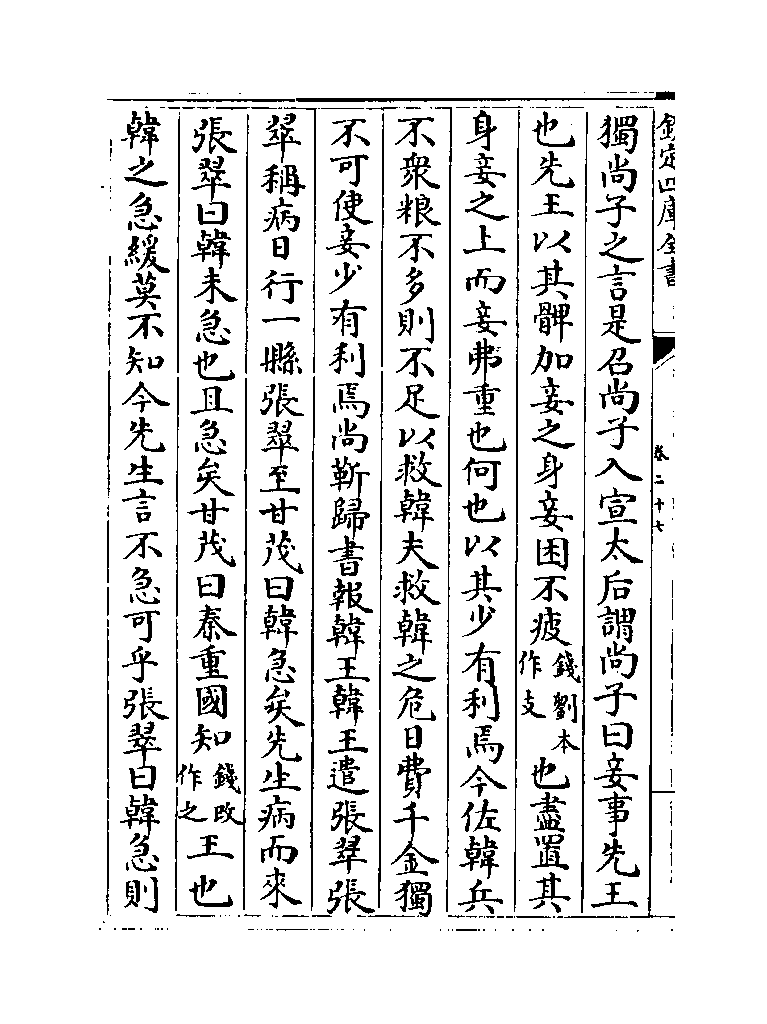 欽定四庫全書
卷二十七
獨尚子之言是召尚子入宣太后謂尚子曰妾事先王
也先王以其髀加妾之身妾困不疲錢劉本作支也盡置其
身妾之上而妾弗重也何也以其少有利焉今佐韓兵
不衆粮不多則不足以救韓夫救韓之危日費千金獨
不可使妾少有利焉尚靳歸書報韓王韓王遣張翠張
翠稱病日行一縣張翠至甘茂曰韓急矣先生病而來
張翠曰韓未急也且急矣甘茂曰秦重國知錢改作之王也
韓之急緩莫不知今先生言不急可乎張翠曰韓急則